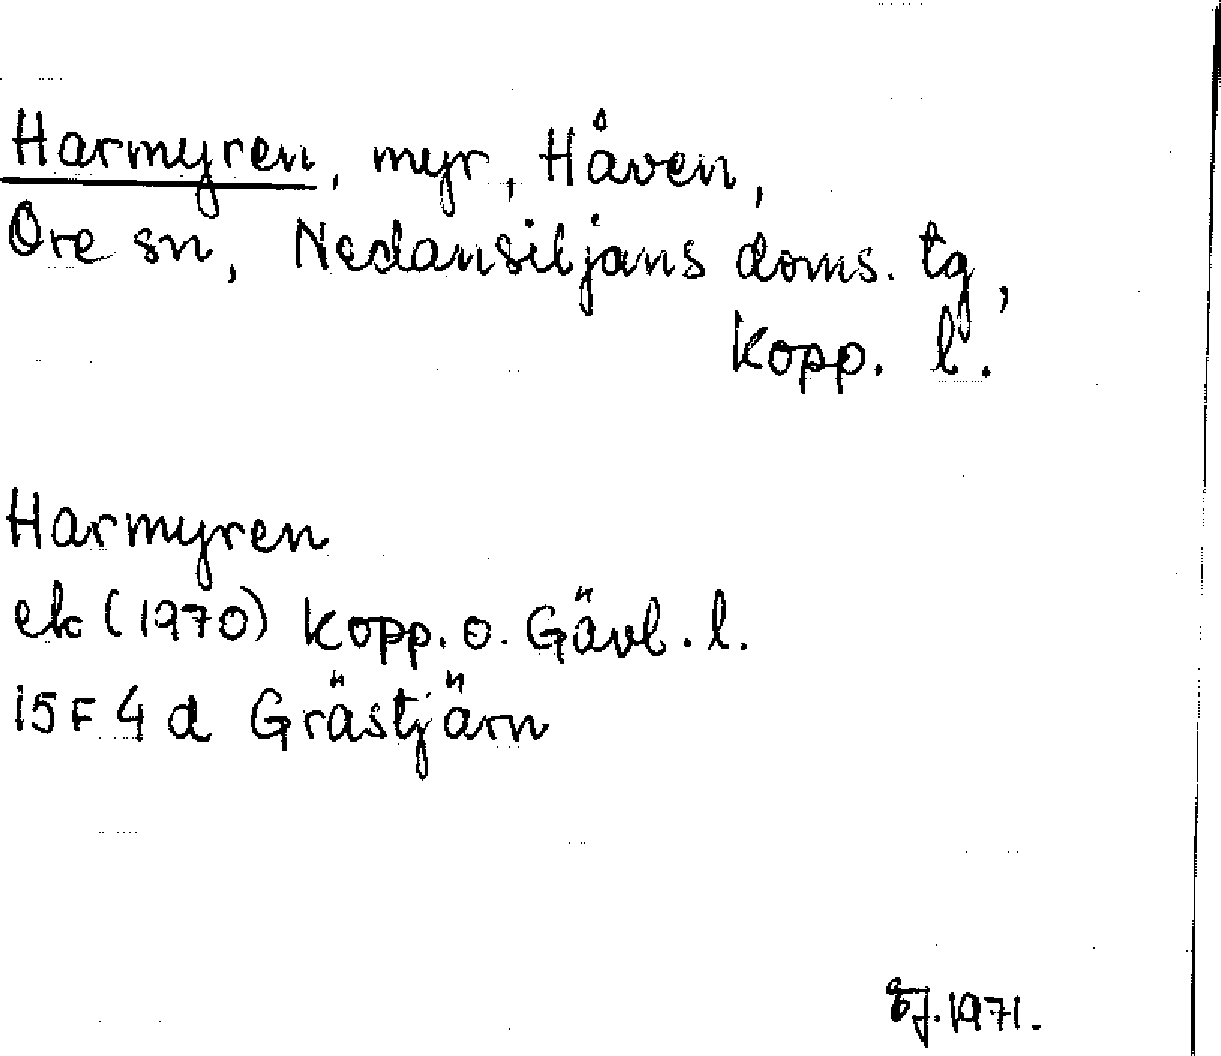 Harmyren, myr, Håven,
Ore sn, Nedansiljans doms. tg,
Kopp. l.
Harmyren
ek (1970) Kopp. o. Gävl. l.
15 F 4 d Grästjärn
1971.